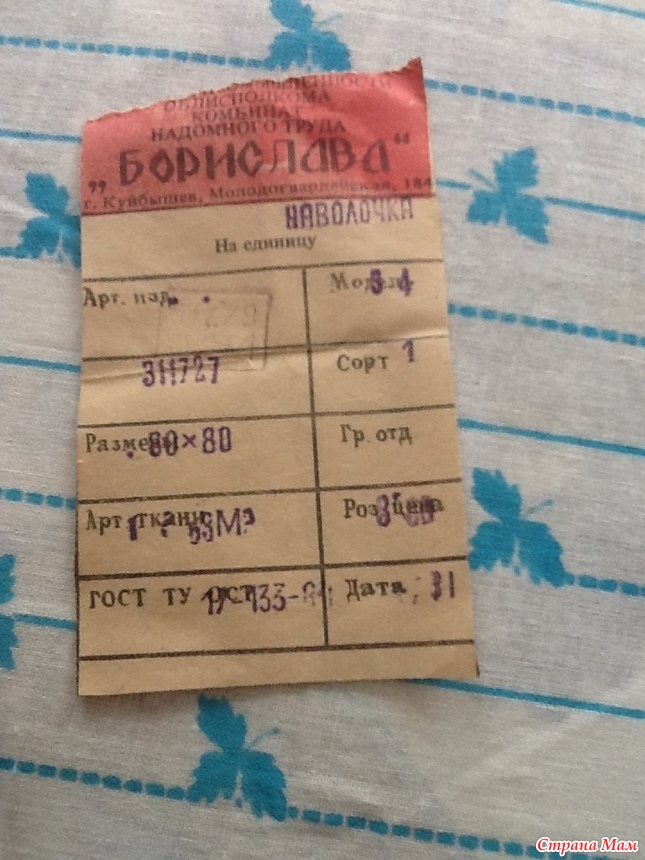 ОБЛИСПОЛКОМА
КОМБИНАТ
НАДОМНОГО ТРУДА
„БОРИСЛАВА“
г. Куйбышев, Молодогвардейская, 184
НАВОЛОЧКА
На единицу
Арт. изд.
Модель 3 4
311727
Сорт 1
Размеры 80×80
Гр. отд
Арт ткани
Роз цена
ГОСТ ТУ ОСТ
Дата
Страна Мам